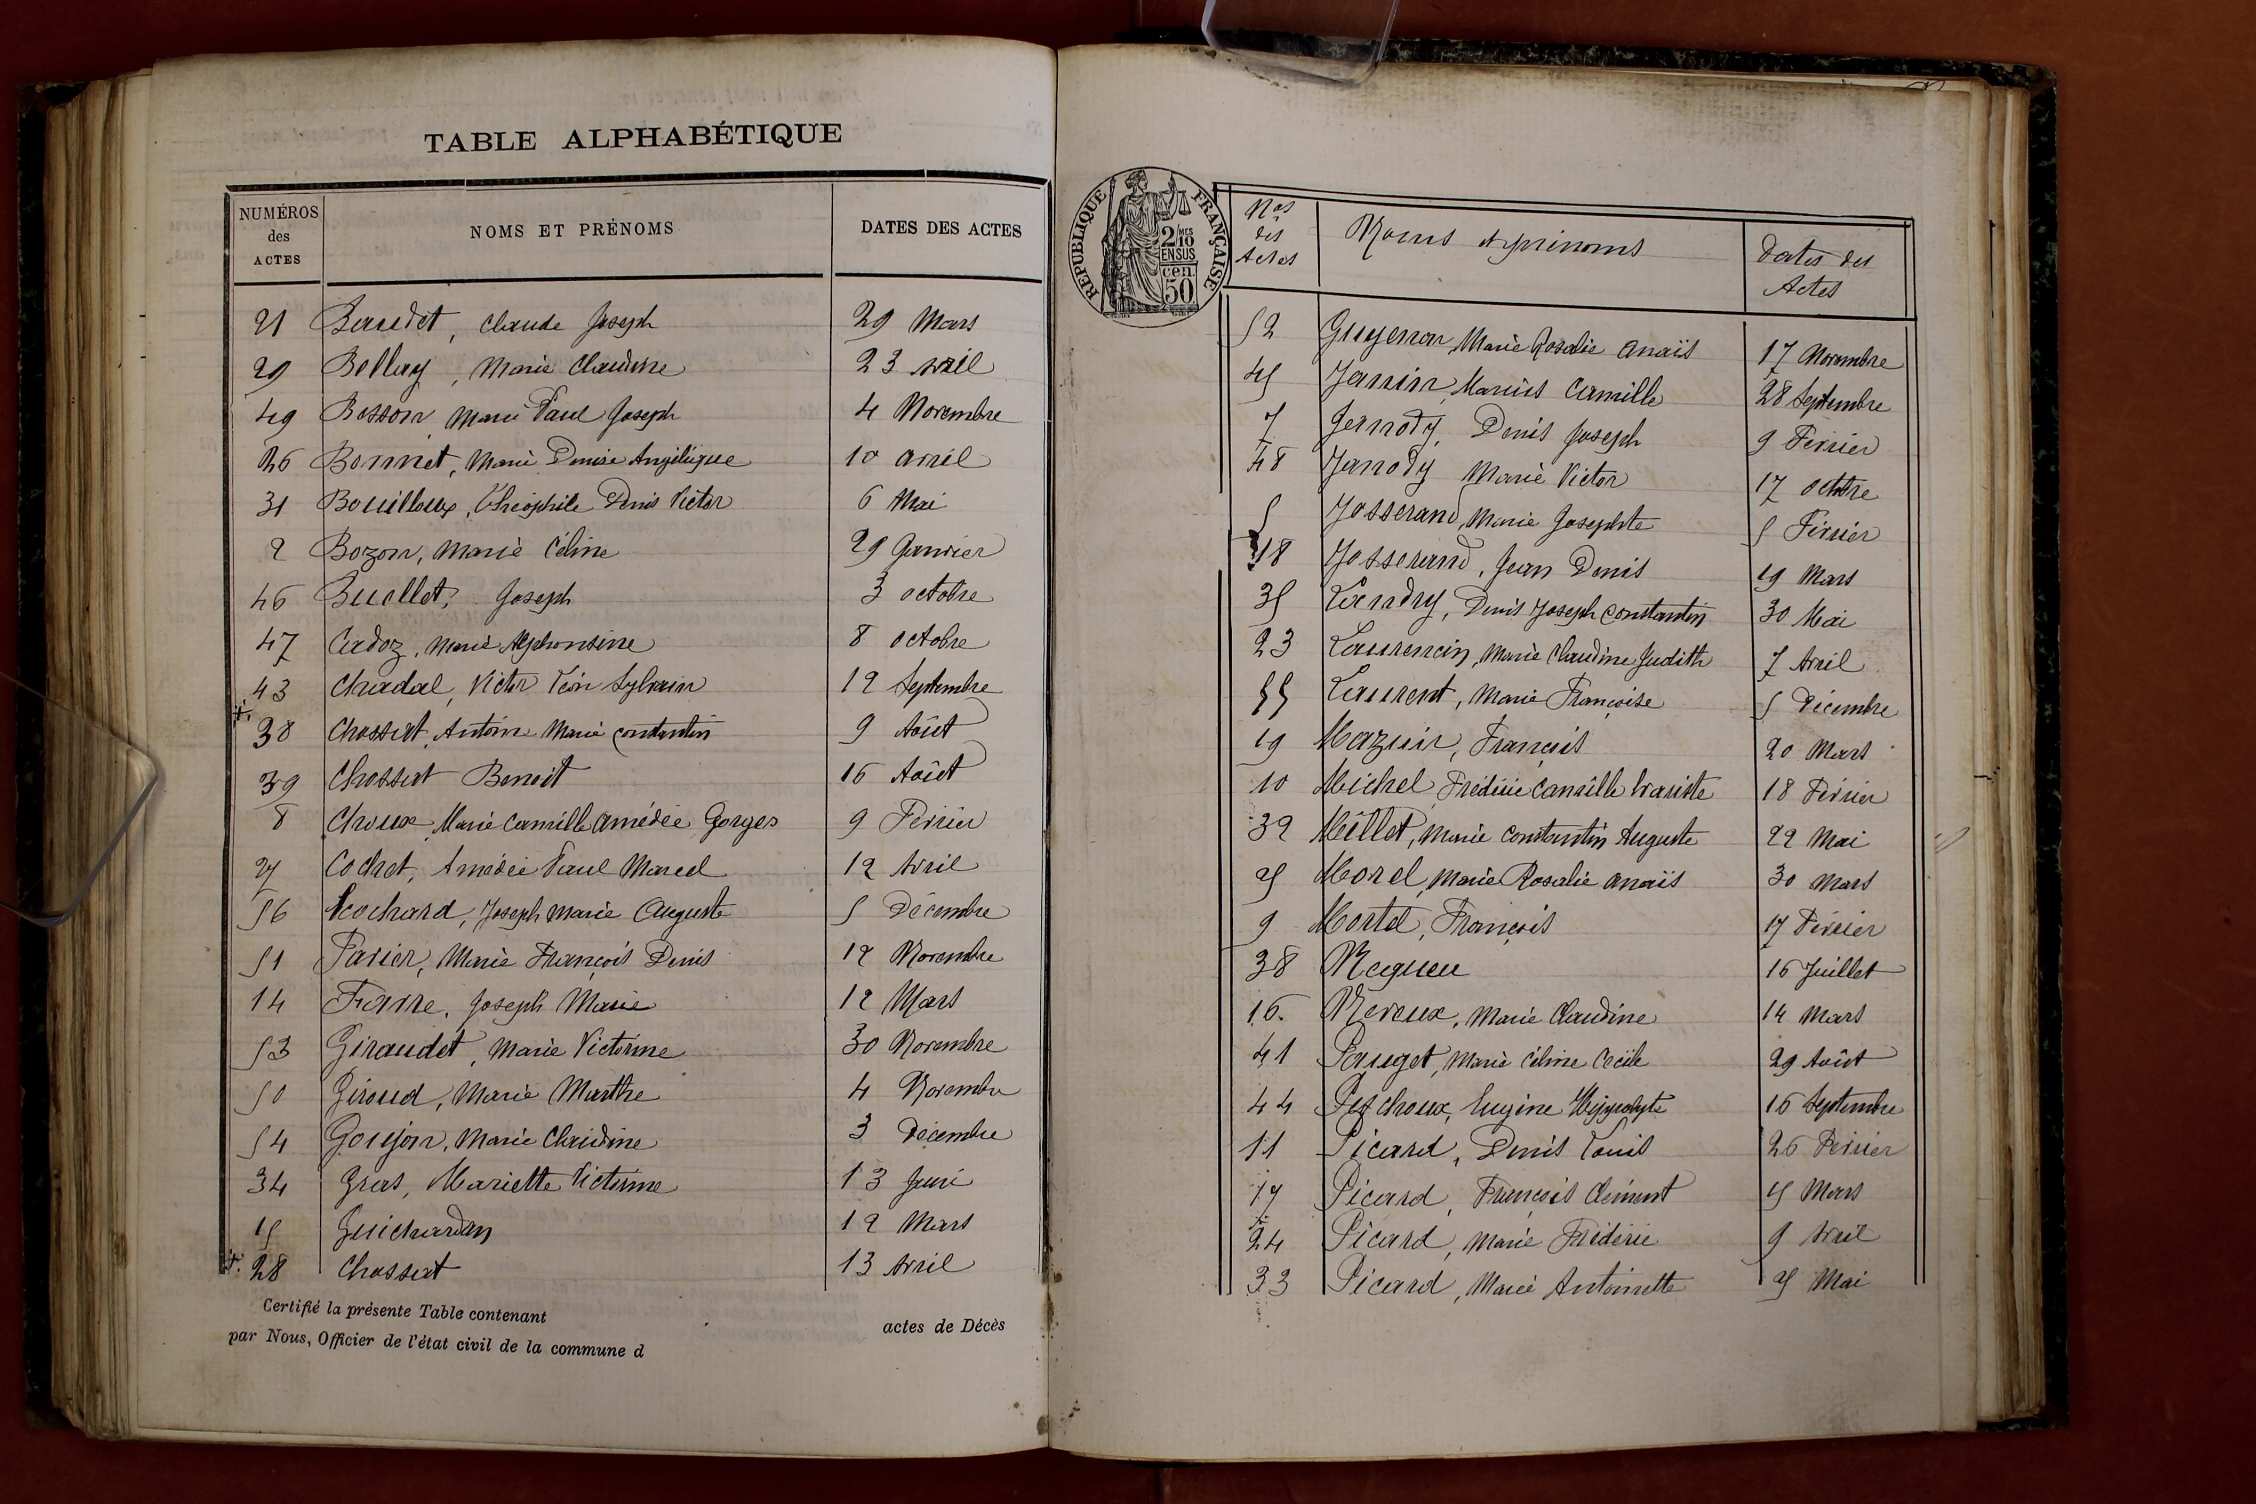 TABLE ALPHABÉTIQUE
NUMÉROS des ACTES NOMS ET PRÉNOMS DATES DES ACTES
21 Baudet, Claude Joseph 29 Mars
29 Bellay, Marie Claudine 23 avril
49 Besson Marie Paul Joseph 4 Novembre
26 Bonnet, Marie Denise Angélique 10 avril
31 Bouilloux, Théophile Denis Victor 6 Mai
2 Bozon, Marie Céline 29 Janvier
46 Buellet, Joseph 3 octobre
47 Cadoz, Marie Alphonsine 8 octobre
43 Chadal, Victor Léon Sylvain 12 Septembre
38 Chossat, Antoine Marie Constantin 9 Août
39 Chossat Benoit 16 Août
8 Choux Marie Camille Amédée Gorges 9 Février
27 Cochet, Amédée Paul Marcel 12 Avril
56 Cochard, Joseph Marie Auguste 5 Décembre
51 Favier, Marie François Denis 12 Novembre
14 Favre, Joseph Marie 12 Mars
53 Giraudet, Marie Victorine 30 Novembre
50 Giroud, Marie Marthe 4 Novembre
54 Goujon, Marie Claudine 3 Décembre
34 Gras, Mariette Victorine 13 Juin
15 Guichardan 12 Mars
28 Chossat 13 Avril
Certifié la présente Table contenant actes de Décès
par Nous, Officier de l'état civil de la commune d
RÉPUBLIQUE FRANÇAISE
2/10 MES
EN SUS
cen.
50
Nos des Actes Noms et prénoms Dates des Actes
52 Guyenon, Marie Rosalie Anaïs 17 Novembre
45 Janin, Marius Camille 28 Septembre
7 Jernody, Denis Joseph 9 Février
48 Janody Marie Victor 17 octobre
5 Josserand, Marie Josephte 5 Février
18 Josserand, Jean Denis 19 Mars
35 Landry, Denis Joseph Constantin 30 Mai
23 Laurencin, Marie Claudine Judith 7 Avril
55 Laurent, Marie Françoise 5 Décembre
19 Mazuir, François 20 Mars
10 Michel Frédéric Camille 18 Février
32 Millet, Marie Constantin Auguste 22 Mai
25 Morel, Marie Rosalie Anaïs 30 Mars
9 Mortel, François 17 Février
38 Negueu 16 Juillet
16. Neveux, Marie Claudine 14 Mars
41 Pauget, Marie Céline Cécile 29 Août
44 Peschoux, Eugène Hippolyte 16 Septembre
11 Picard, Denis Louis 26 Février
17 Picard, François Clément 15 Mars
24 Picard, Marie Frédéric 9 Avril
33 Picard, Marie Antoinette 25 Mai